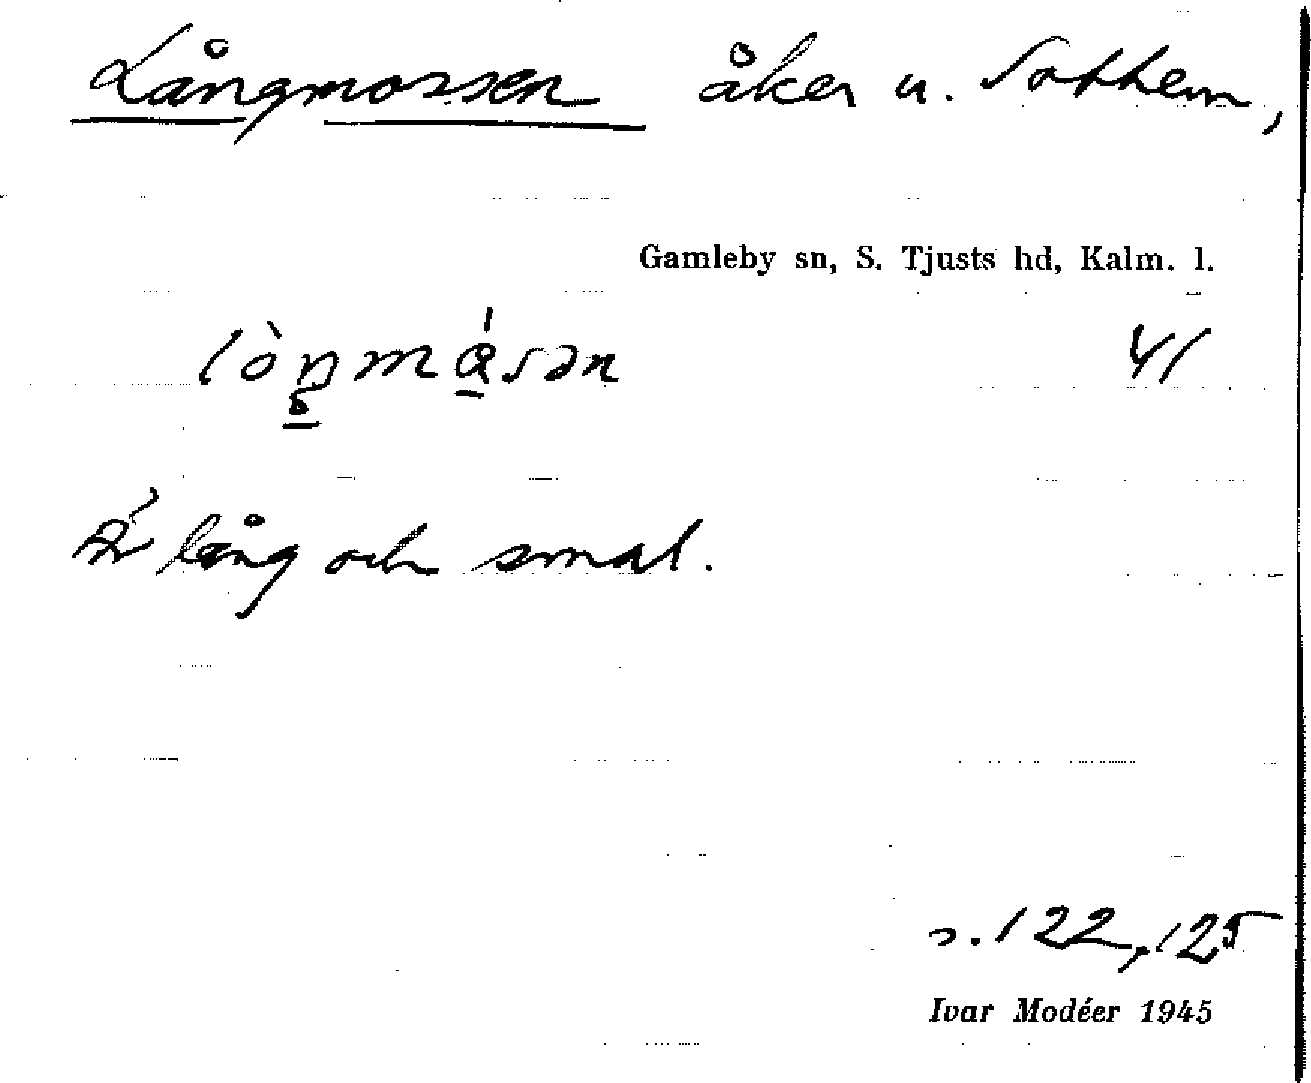 Långmossen åker u. Sothem,
Gamleby sn, S. Tjusts hd, Kalm. l.
41
Är lång och smal.
s. 122, 125
Ivar Modéer 1945